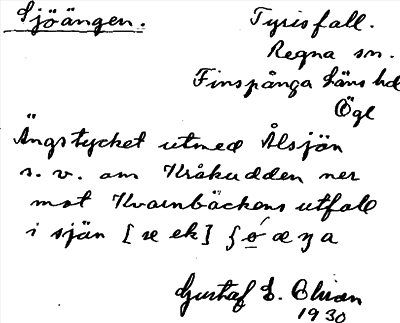 Sjöängen.
Tyrisfall.
Regna sn.
Finspånga läns hd
Ögl
Ängstycket utmed Ålsjön
s. v. om Kråkudden ner
mot Kvarnbäckens utfall
i sjön [se ek]
Gustaf E.
1930